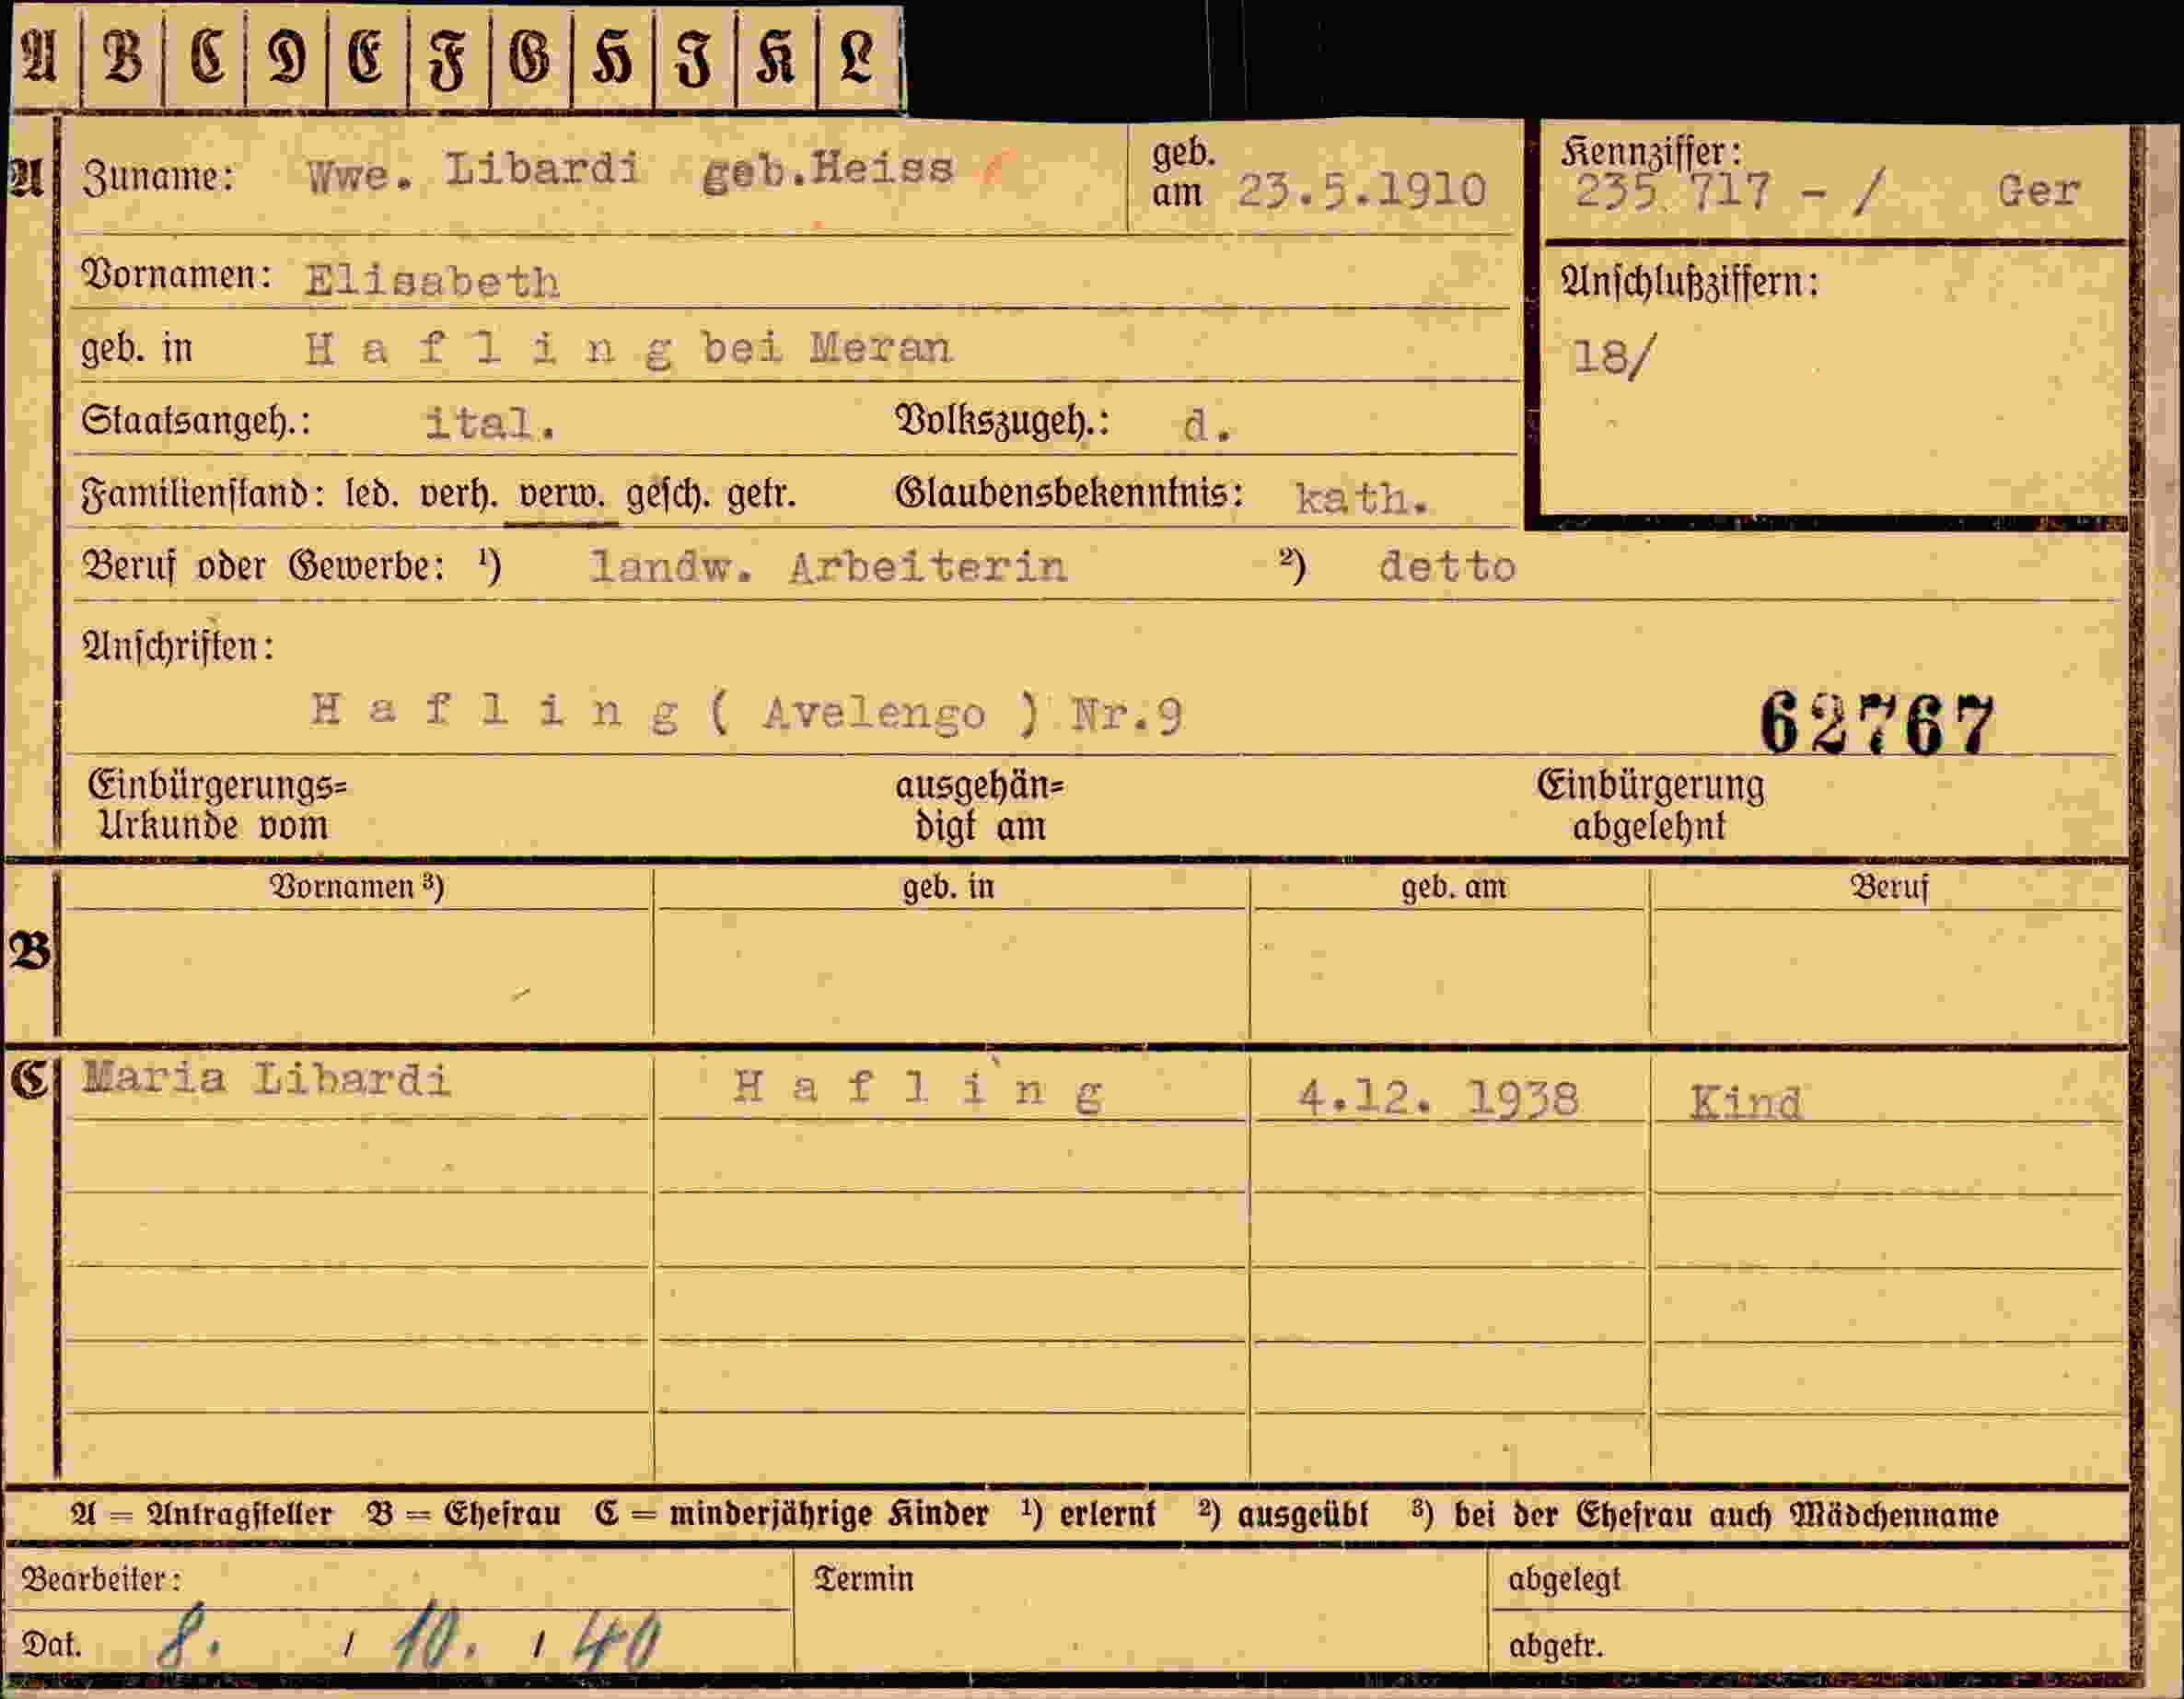 A B C D E F G H J K L
A Zuname: Wwe. Libardi geb.Heiss geb. am 23.5.1910 Kennziffer: 235 717 - / Ger
Vornamen: Elisabeth Anschlußziffern:
geb. in H a f l i n g bei Meran 18/
Staatsangeh.: ital. Volkszugeh.: d.
Familienstand: led. verh. verw. gesch. getr. Glaubensbekenntnis: kath.
Beruf oder Gewerbe: ¹) landw. Arbeiterin ²) detto
Anschriften:
H a f l i n g ( Avelengo ) Nr.9 62767
Einbürgerungs= ausgehän= Einbürgerung
Urkunde vom digt am abgelehnt
Vornamen ³) geb. in geb. am Beruf
B
C Maria Libardi H a f l i n g 4.12. 1938 Kind
A = Antragsteller B = Ehefrau C = minderjährige Kinder ¹) erlernt ²) ausgeübt ³) bei der Ehefrau auch Mädchenname
Bearbeiter: Termin abgelegt
Dat. 8. / 10. / 40 abgetr.